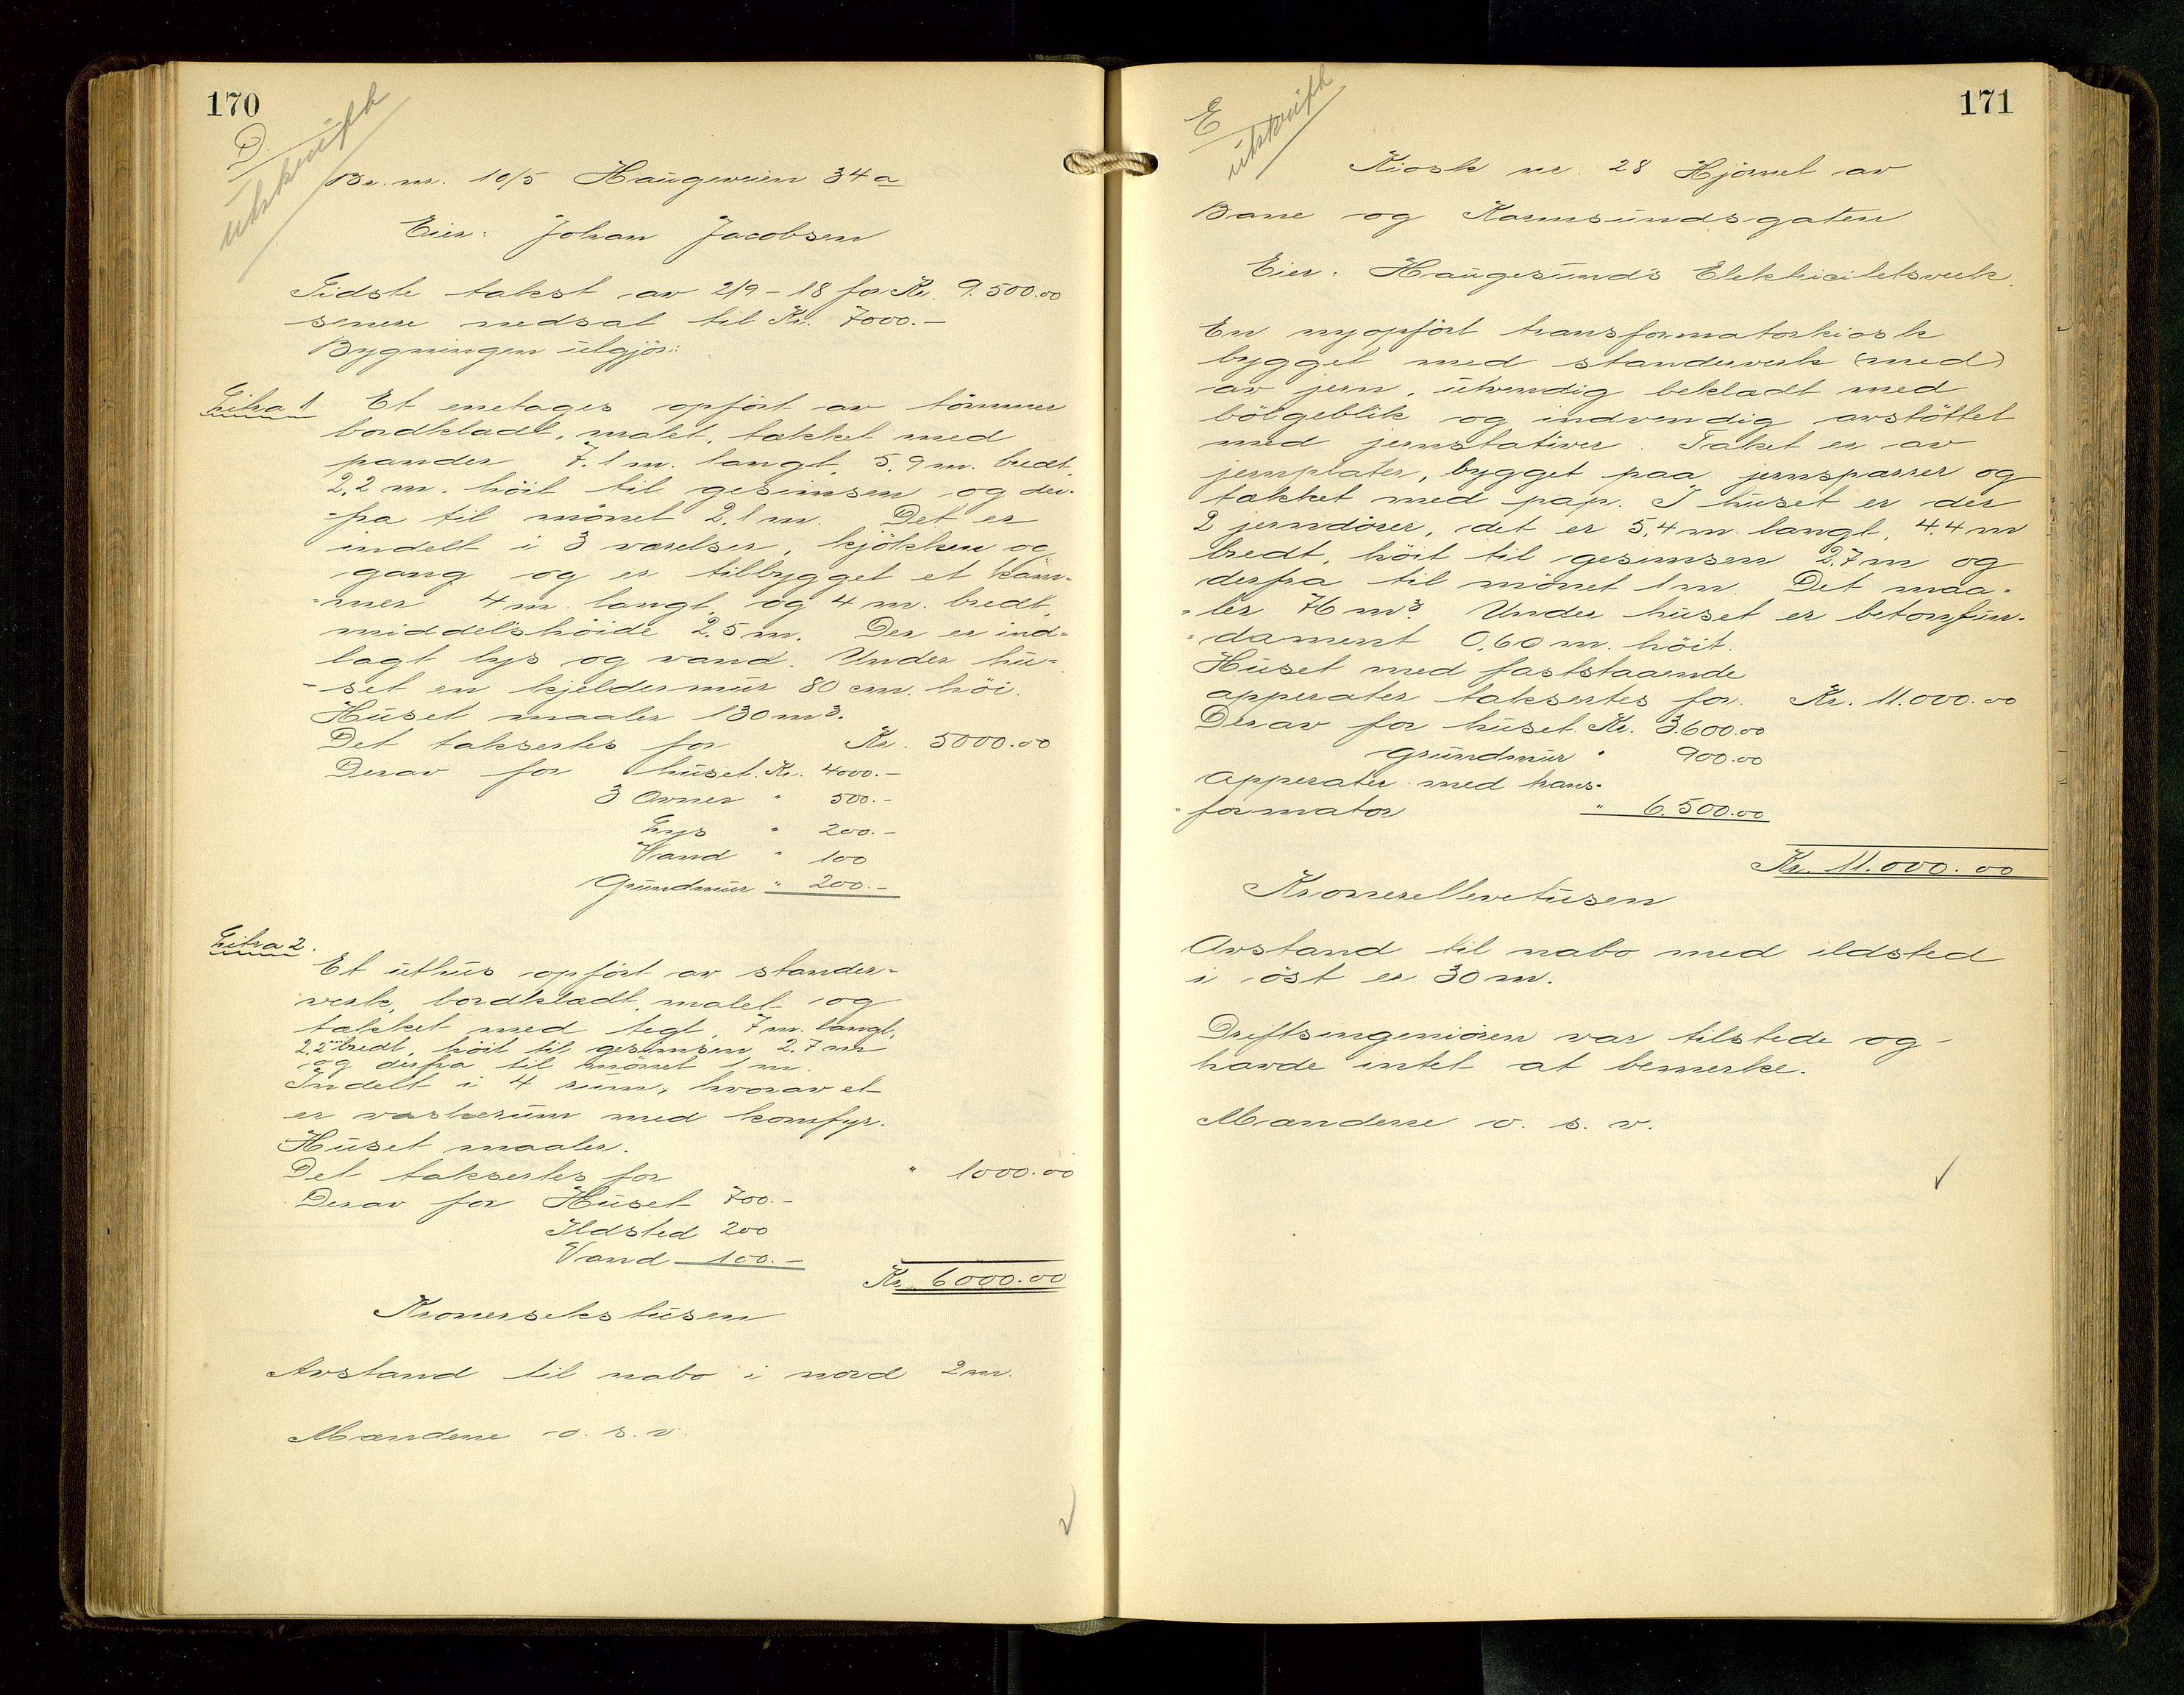 170
D.
utskrift
Br. nr. 10/5 Haugeveien 34a
Eier: Johan Jacobsen
Sidste takst av 2/9-18 for Kr. 9.500.00
senere nedsat til Kr. 7000.-
Bygningen utgjør:
Litra 1 Et enetages opført av tømmer
bordkladt, malet, tækket med
pander 7.1 m. langt, 5.9 m. bredt,
2.2 m. höit til gesimsen og der-
-fra til mönet 2.1 m. Det er
indelt i 3 værelser, kjökken og
gang og er tilbygget et kam-
-mer 4 m. langt, og 4 m. bredt,
middelshöide 2.5 m. Der er ind-
lagt lys og vand. Under hu-
-set en kjeldermur 80 cm. höi.
Huset maaler 130 m³.
Det taksertes for Kr. 5000.00
Derav for huset Kr. 4000.-
3 Ovner " 500.-
Lys " 200.-
Vand " 100
Grundmur " 200.-
Litra 2.
Et uthus opfört av stander-
verk, bordkladt, malet og
tækket med tegl, 7 m. langt,
2.2 m bredt, höit til gesimsen 2.7 m
og derfra til mönet 1 m.
Indelt i 4 rum, hvorav et
er vaskerum med komfyr.
Huset maaler.
Det taksertes for " 1000.00
Derav for Huset 700.-
Ildsted 200
Vand 100.-
Kr. 6000.00
Kronersekstusen
Avstand til nabo i nord 2 m.
Mændene o. s. v.
171
E
utskrift
Kiosk nr. 28 Hjörnet av
Bane og Karmsundsgaten
Eier: Haugesunds Elektricitetsverk.
En nyopfört transformatorkiosk
bygget med standerverk (med)
av jern, utvendig bekladt med
bölgeblik og indvendig avstöttet
med jernstativer. Taket er av
jernplater, bygget paa jernsparrer og
tækket med pap. I huset er der
2 jerndörer, det er 5,4 m. langt, 4.4 m
bredt, höit til gesimsen 2.7 m og
derfra til mönet 1 m. Det maa-
-ler 76 m³. Under huset er betonfun-
-dament 0,60 m. höit.
Huset med faststaaende
apperater taksertes for. Kr. 11.000.00
Derav for huset Kr. 3.600.00
grundmur " 900.00
Apperater med trans-
-formator " 6.500.00
Kr. 11.000.00
Kronerellevetusen
Avstand til nabo med ildsted
i öst er 30 m.
Driftsingeniören var tilstede og
havde intet at bemerke.
Mændene o. s. v.